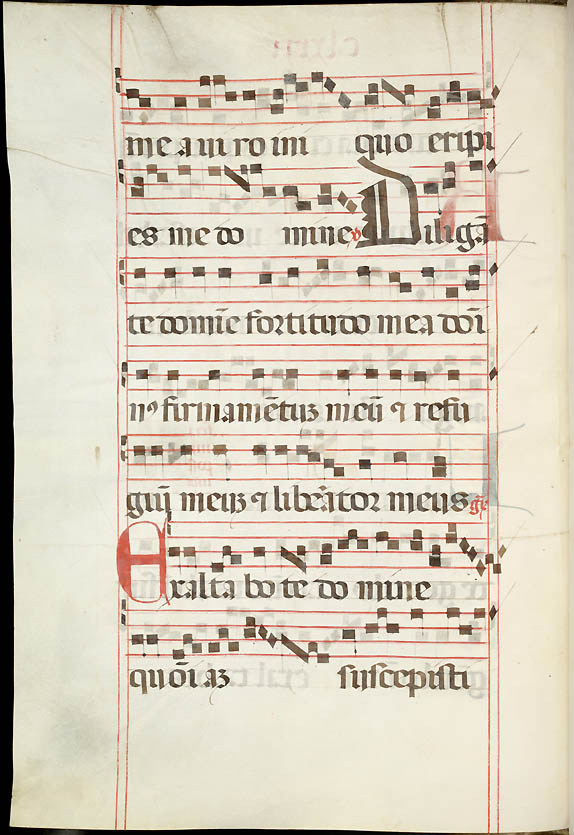 me a ui ro ini quo eripi
es me do mine v Diligā
te domīe fortitudo mea doī
nꝰ firmamētuꝫ meū ⁊ refu
giū meuꝫ ⁊ liberator meus gr̄
Exalta bo te do mine
quōiaꝫ suscepisti